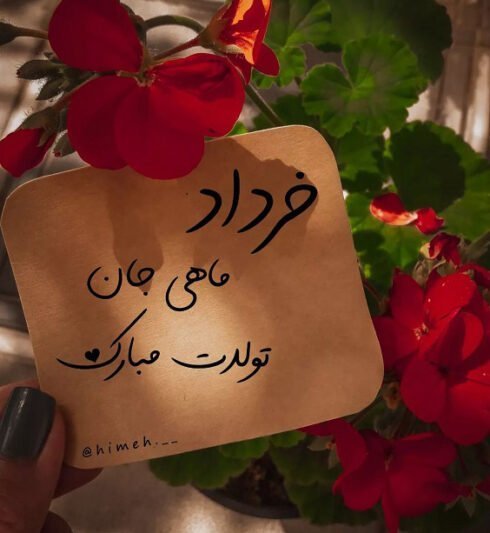 خرداد
ماهی جان
تولدت مبارک
@himeh.__